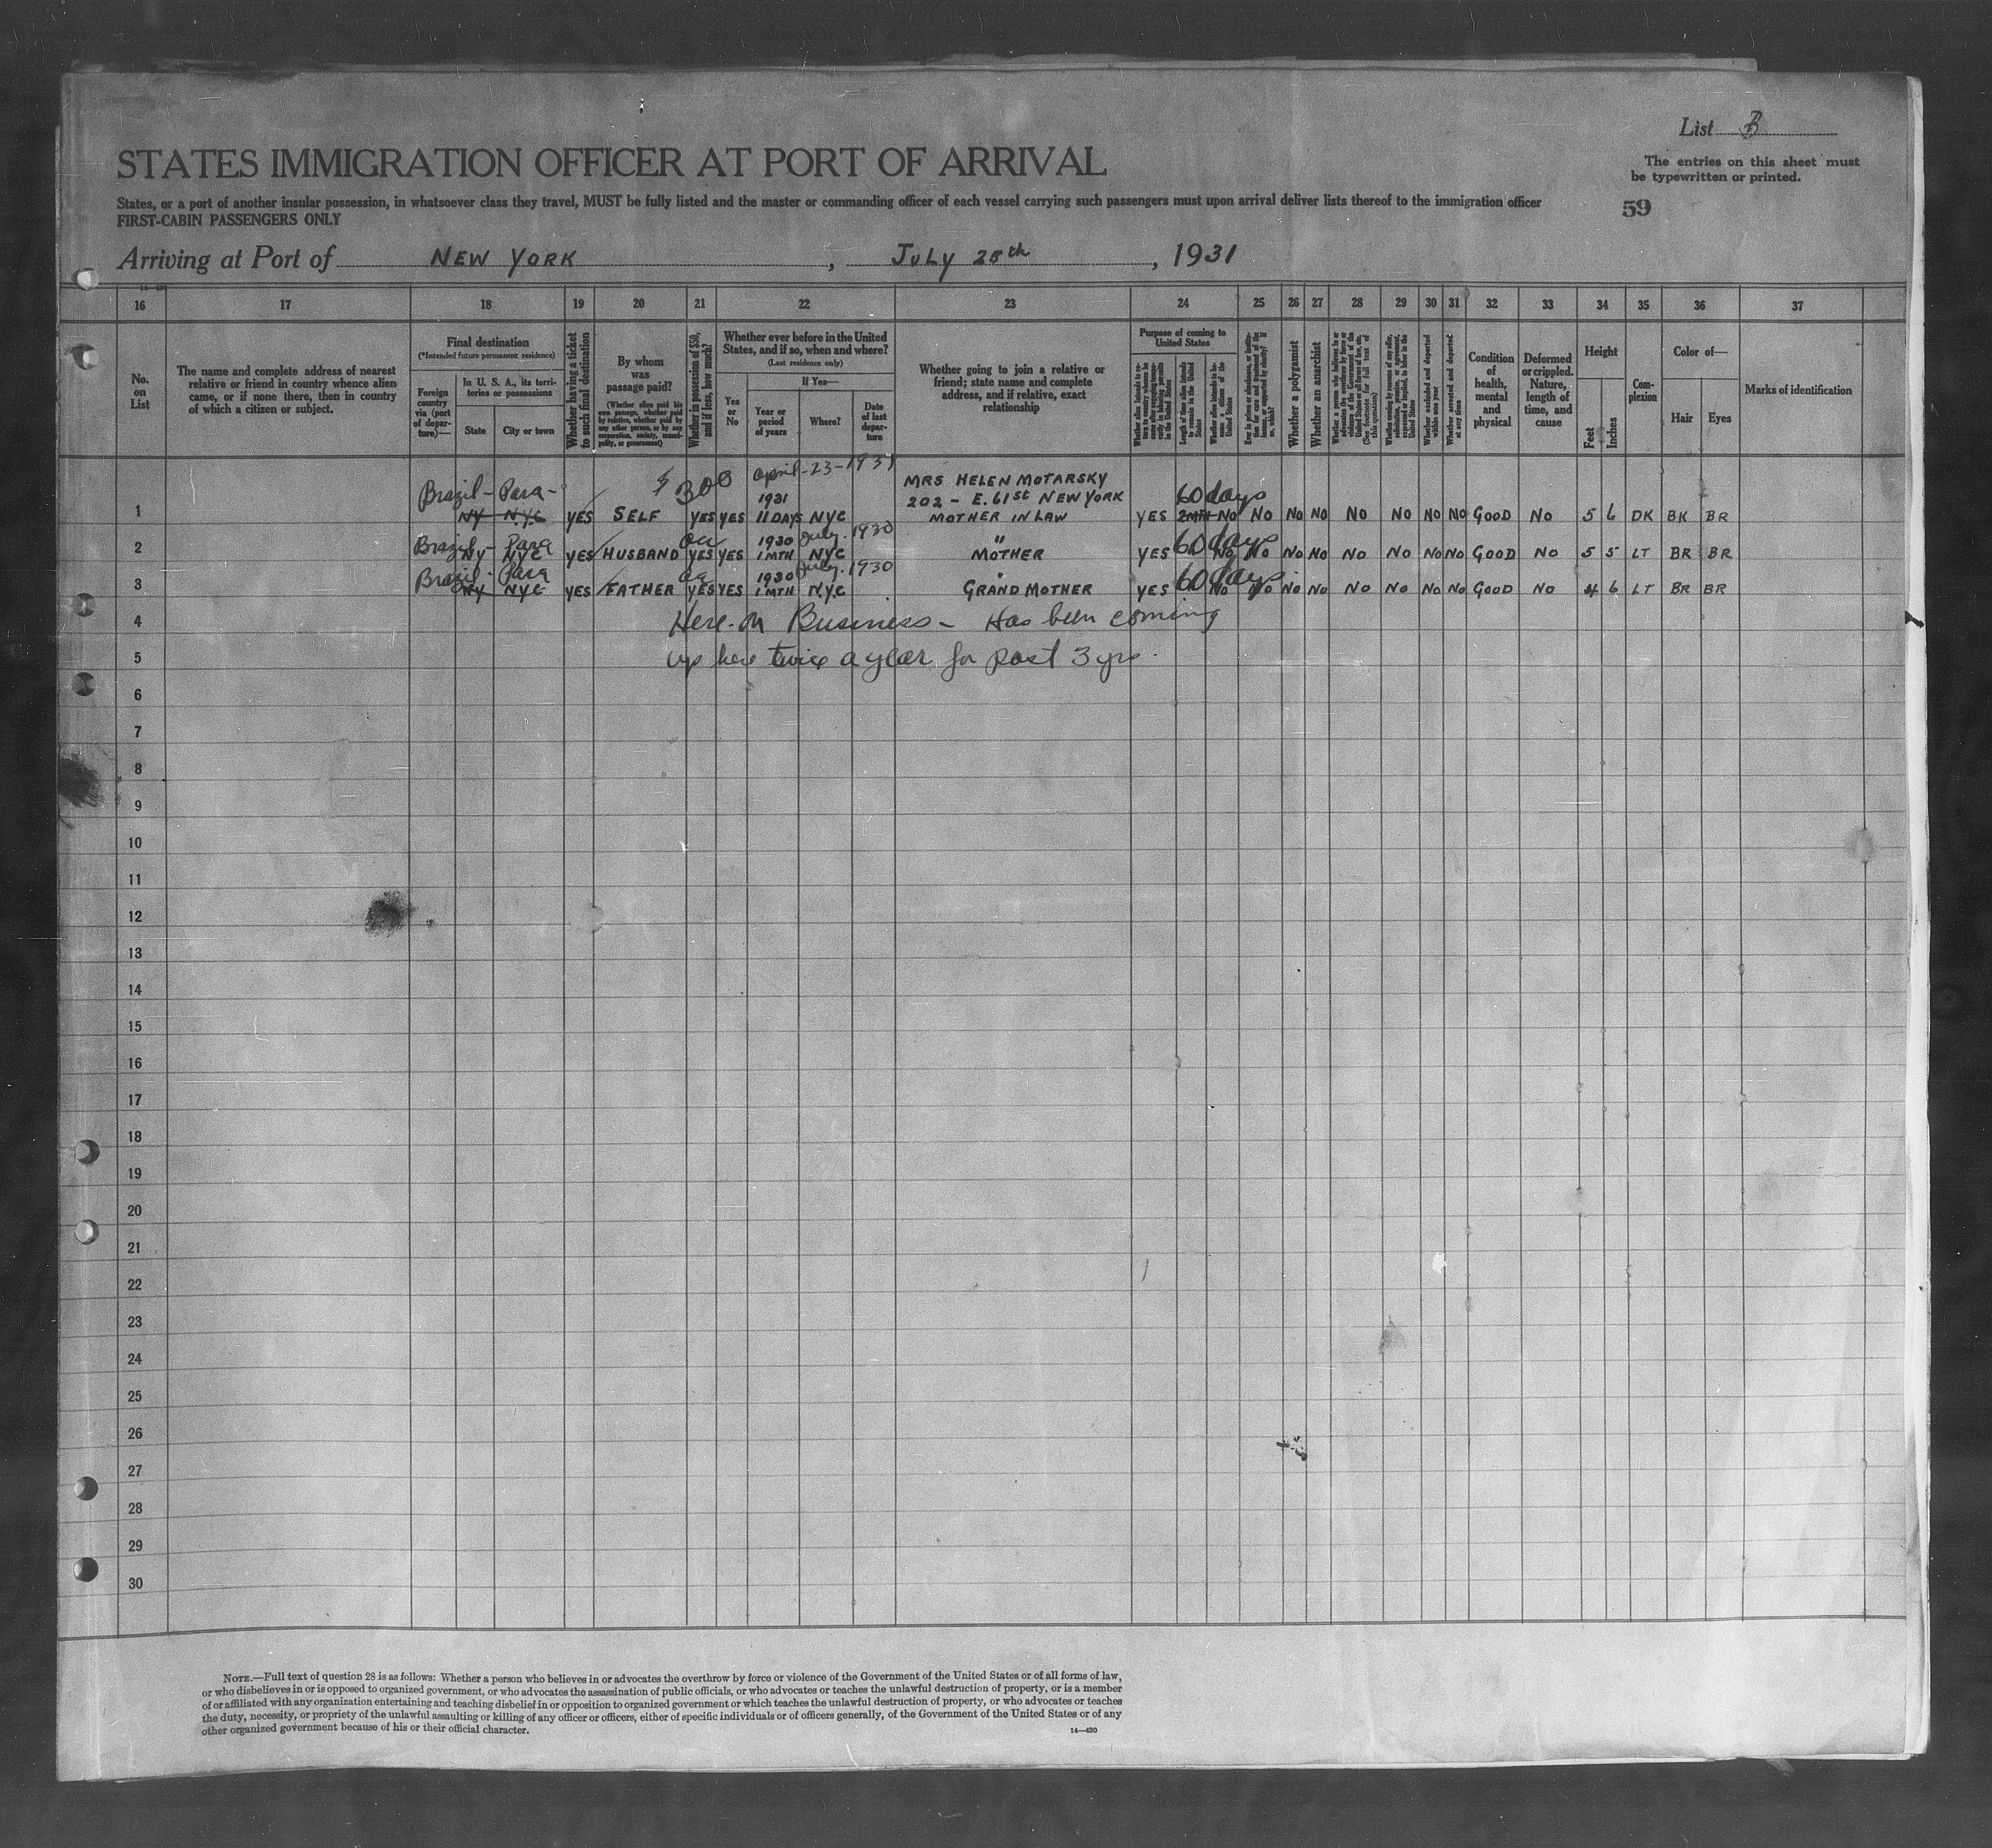 List B
The entries on this sheet must
be typewritten or printed.
STATES IMMIGRATION OFFICER AT PORT OF ARRIVAL
States, or a port of another insular possession, in whatsoever class they travel, MUST be fully listed and the master or commanding officer of each vessel carrying such passengers must upon arrival deliver lists thereof to the immigration officer
FIRST-CABIN PASSENGERS ONLY
59
Arriving at Port of NEW YORK, JULY 28th, 1931
16 17 18 19 20 21 22 23 24 25 26 27 28 29 30 31 32 33 34 35 36 37
No. on List
The name and complete address of nearest
relative or friend in country whence alien
came, or if none there, then in country
of which a citizen or subject.
Final destination
(*Intended future permanent residence)
Foreign country via (port of departure)—
In U. S. A., its territories or possessions
State
City or town
Whether having a ticket to such final destination
By whom was passage paid?
(Whether alien paid his own passage, whether paid by relative, whether paid by any other person, or by any corporation, society, municipality, or government)
Whether in possession of $50, and if less, how much?
Whether ever before in the United
States, and if so, when and where?
(Last residence only)
Yes or No
If Yes—
Year or period of years
Where?
Date of last departure
Whether going to join a relative or
friend; state name and complete
address, and if relative, exact
relationship
Purpose of coming to United States
Length of time alien intends to remain in the United States
Whether alien intends to become a citizen of the United States
Whether a polygamist
Whether an anarchist
Whether excluded and deported within one year
Whether arrested and deported at any time
Condition of health, mental and physical
Deformed or crippled. Nature, length of time, and cause
Height
Feet
Inches
Complexion
Color of—
Hair
Eyes
Marks of identification
Brazil - Para - $300 April-23-1931 MRS HELEN MOTARSKY
1931 202 - E. 61st NEW YORK 60 days
1 NY NYC YES SELF YES YES 11 DAYS NYC MOTHER IN LAW YES 2MTH NO NO NO NO NO NO NO NO GOOD NO 5 6 DK BK BR
Brazil - Para 1930 July. 1930 " 60 days
2 NY NYC YES HUSBAND YES YES 1 MTH NYC MOTHER YES NO NO NO NO NO NO NO NO GOOD NO 5 5 LT BR BR
Brazil - Para 1930 July. 1930 " 60 days
3 NY NYC YES FATHER YES YES 1 MTH NYC GRAND MOTHER YES NO NO NO NO NO NO NO NO GOOD NO 4 6 LT BR BR
4 Here on Business - Has been coming
5 up here twice a year for past 3 yrs.
6
7
8
9
10
11
12
13
14
15
16
17
18
19
20
21
22
23
24
25
26
27
28
29
30
NOTE.—Full text of question 28 is as follows: Whether a person who believes in or advocates the overthrow by force or violence of the Government of the United States or of all forms of law,
or who disbelieves in or is opposed to organized government, or who advocates the assassination of public officials, or who advocates or teaches the unlawful destruction of property, or is a member
of or affiliated with any organization entertaining and teaching disbelief in or opposition to organized government or which teaches the unlawful destruction of property, or who advocates or teaches
the duty, necessity, or propriety of the unlawful assaulting or killing of any officer or officers, either of specific individuals or of officers generally, of the Government of the United States or of any
other organized government because of his or their official character.
14—430